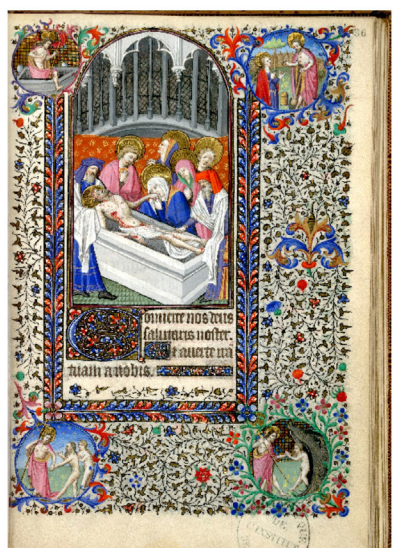 Conuerte nos deus
salutaris noster.
Et auerte ira
tuam a nobis.